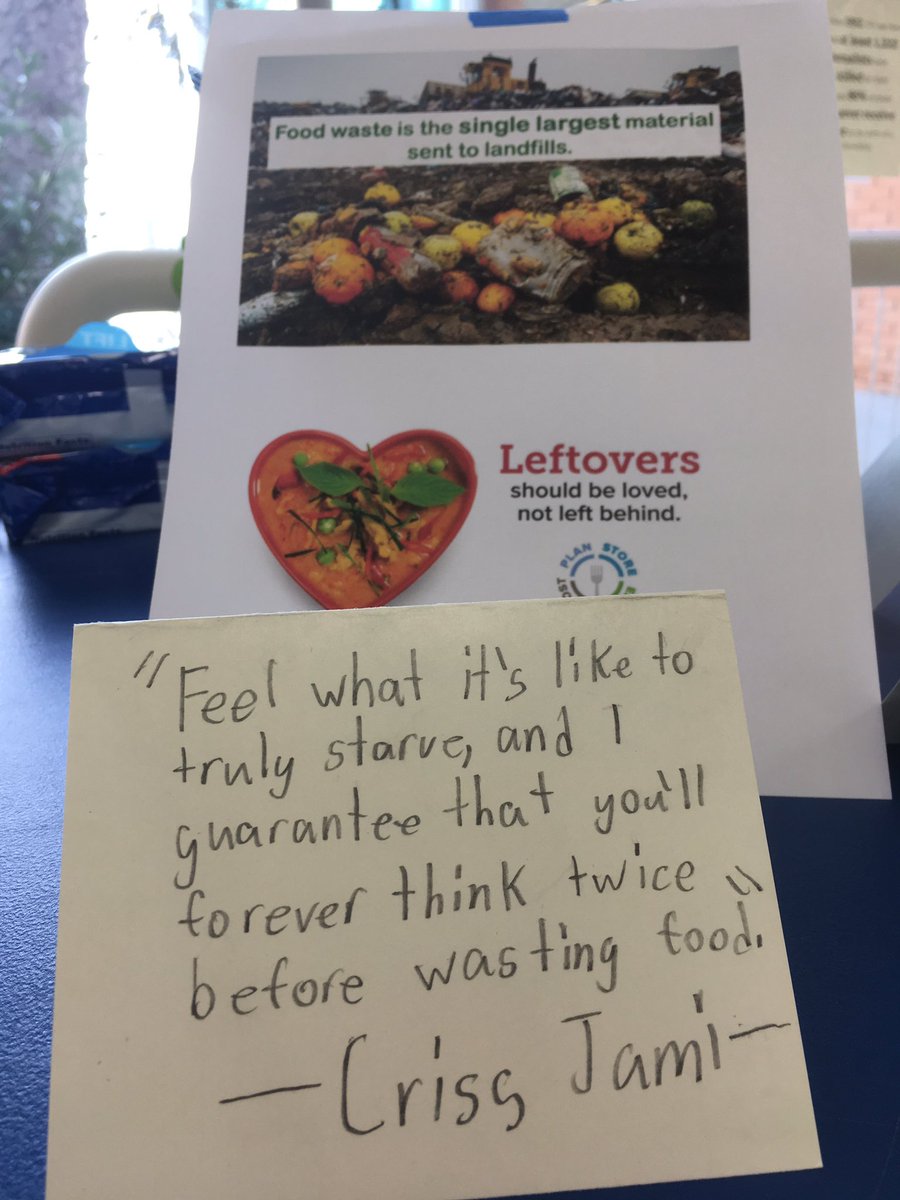 Food waste is the single largest material
sent to landfills.
Leftovers
should be loved,
not left behind.
PLAN STORE
Nutrition Facts
"Feel what it's like to
truly starve, and I
guarantee that you'll
forever think twice
before wasting food."
—Criss Jami—